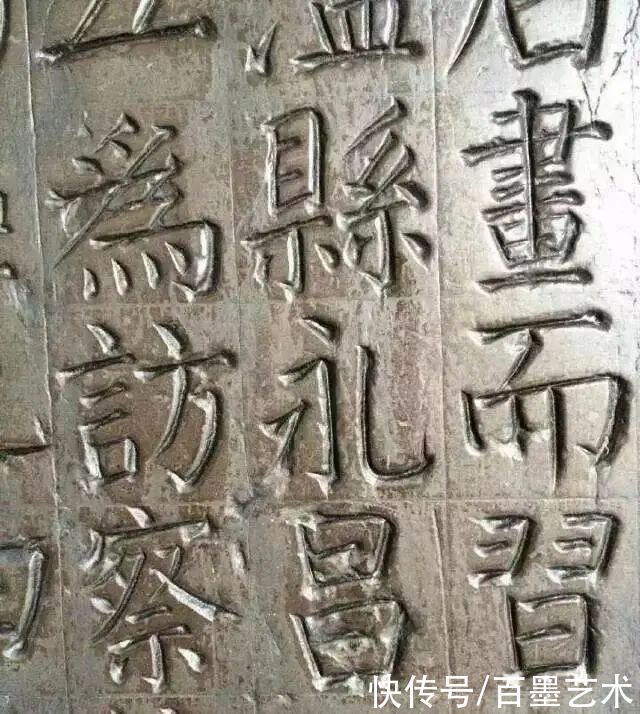 畫而習
溫縣礼昌
為訪察
快传号/百墨艺术